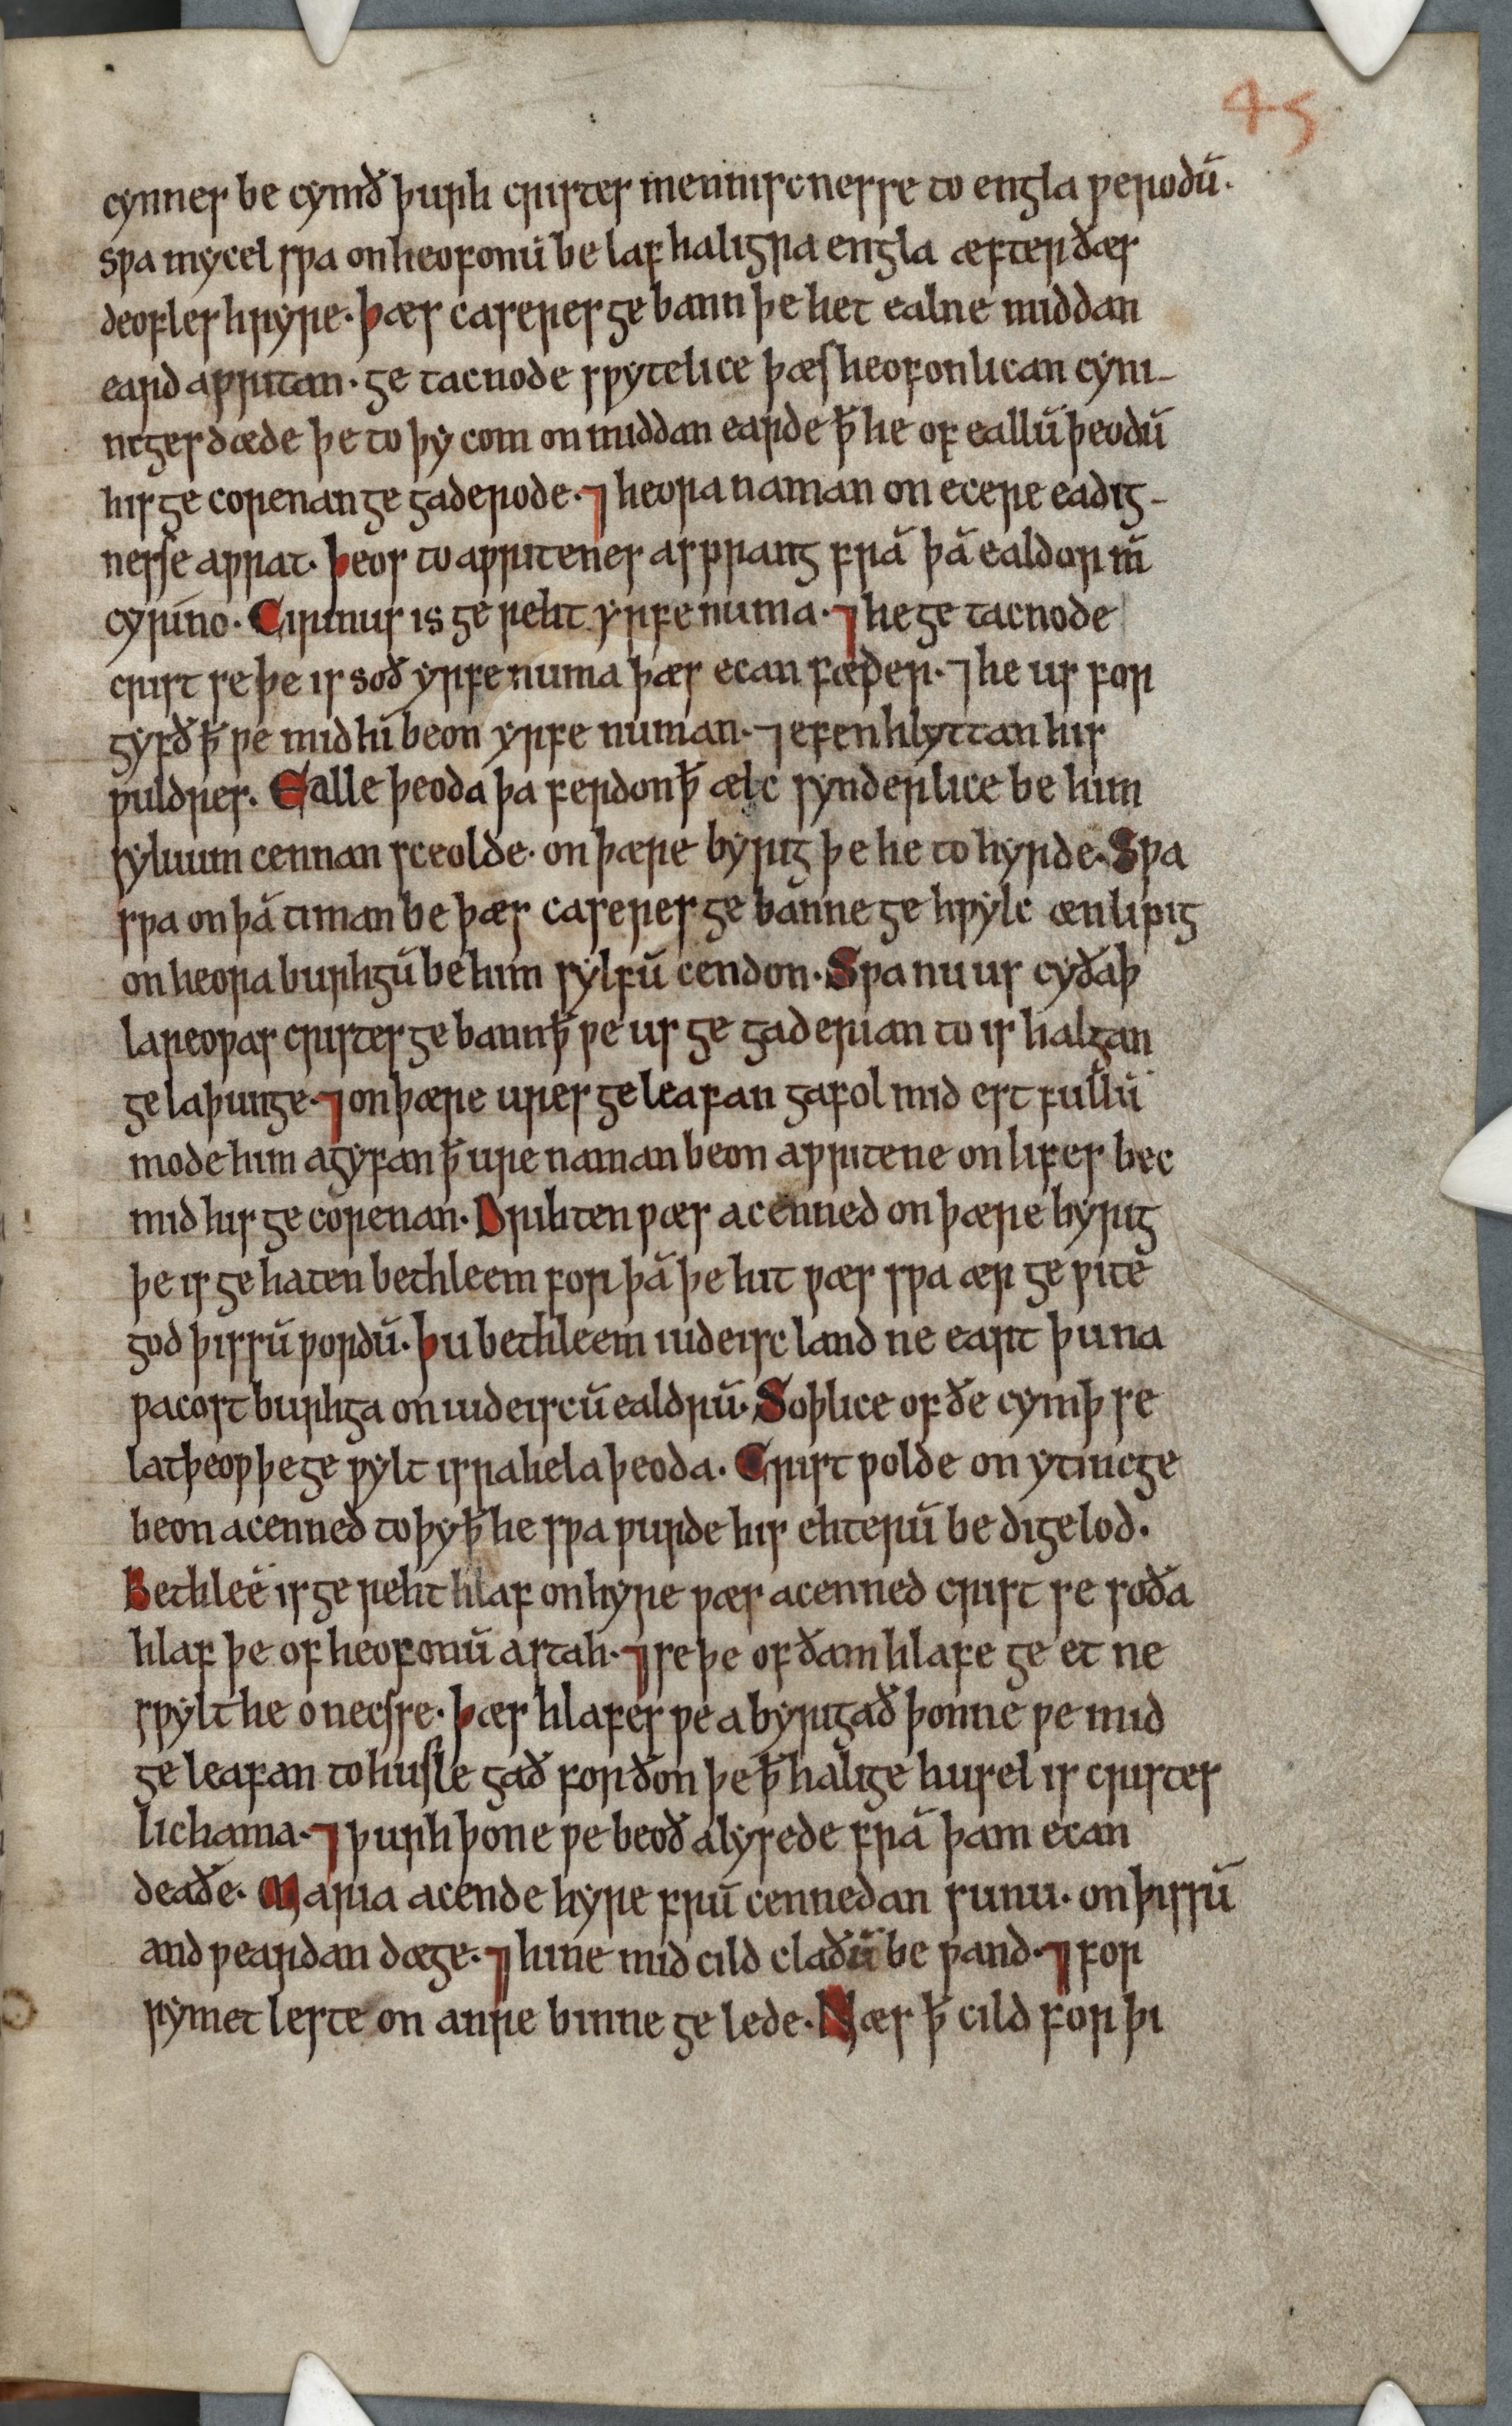 45
cynnes be cymð þurh cristes menniscnesse to engla ƿerodū.
Sƿa mycel sƿa on heofonū be laf haligra engla æfter ðæs
deofles hryre. Þæs caseres ge bann þe het ealne middan
eard aƿritan. ge tacnode sƿytelice þæs heofonlican cyni-
ncges dæde þe to þy com on middan earde ꝥ he of eallū þeodū
his ge corenan ge gaderode. ⁊ heora naman on ecere eadig-
nesse aƿrat. Þeos to aƿritenes asprang frā þā ealdor m̄
cyrino. Cirinus is ge reht yrfe numa. ⁊ he ge tacnode
crist se þe is soð yrfe numa þæs ecan fæder. ⁊ he us for
gyfð ꝥ ƿe mid hī beon yrfe numan. ⁊ efen hlyttan his
ƿuldres. Ealle þeoda þa ferdon ꝥ ælc synderlice be him
syluum cennan sceolde. on þære byrig þe he to hyrde. Sƿa
sƿa on þā timan be þæs caseres ge banne ge hƿylc ænlipig
on heora burhgū be him sylfū cendon. Sƿa nu us cyðaþ
lareoƿas cristes ge bann ꝥ ƿe us ge gaderian to is halgan
ge laþunge. ⁊ on þære ures ge leafan gafol mid est fullū
mode him agyfan ꝥ ure naman beon aƿritene on lifes bec
mid his ge corenan. Drihten ƿæs acenned on þære byrig
þe is ge haten bethleem for þā þe hit ƿæs sƿa ær ge ƿite
god þissū ƿordū. Þu bethleem iudeisc land ne eart þu na
ƿacost burhga on iudeiscū ealdrū. Soþlice of ðe cymþ se
latþeoƿ þe ge ƿylt israhela þeoda. Crist ƿolde on ytincge
beon acenned to þy ꝥ he sƿa ƿurde his ehterū be digelod.
Bethleē is ge reht hlaf on hyre ƿæs acenned crist se soða
hlaf þe of heofonū astah. ⁊ se þe of ðam hlafe ge et ne
sƿylt he o necsse. Þæs hlafes ƿe abyrigað þonne ƿe mid
ge leafan to husle gað for ðon þe ꝥ halige husel is cristes
lichama. ⁊ þurh þone ƿe beoð alysede frā þam ecan
deaðe. Maria acende hyre frū cennedan sunu. on þissū
and ƿeardan dæge. ⁊ hine mid cild claðū be ƿand. ⁊ for
rymet leste on anre binne ge lede. Næs ꝥ cild for þi